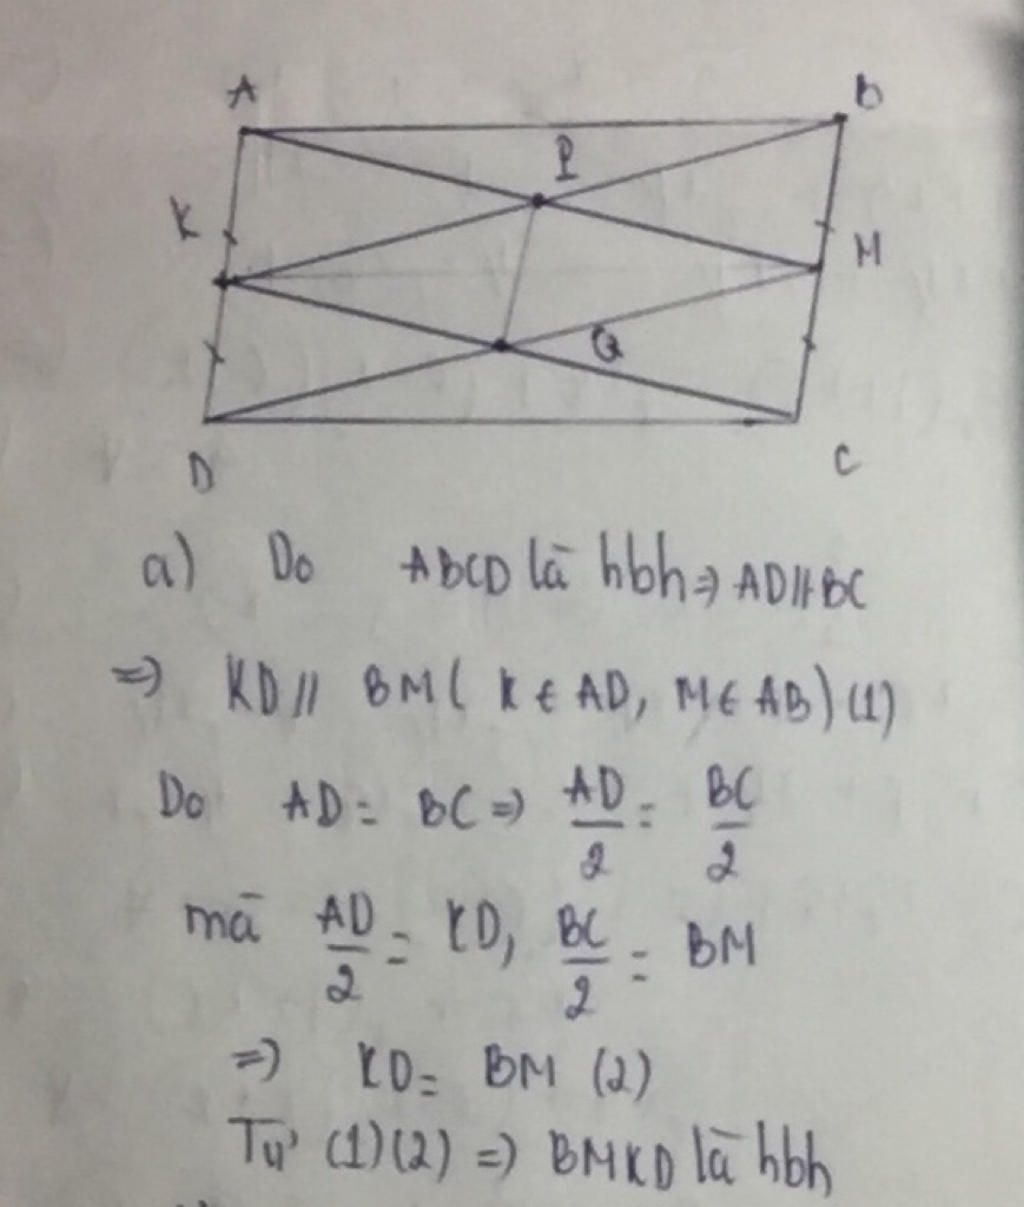 A
B
P
K
M
Q
D
C
a) Do ABCD là hbh => AD // BC
=> KD // BM ( K ∈ AD, M ∈ AB) (1)
Do AD = BC => AD/2 = BC/2
mà AD/2 = KD, BC/2 = BM
=> KD = BM (2)
Từ (1)(2) => BMKD là hbh